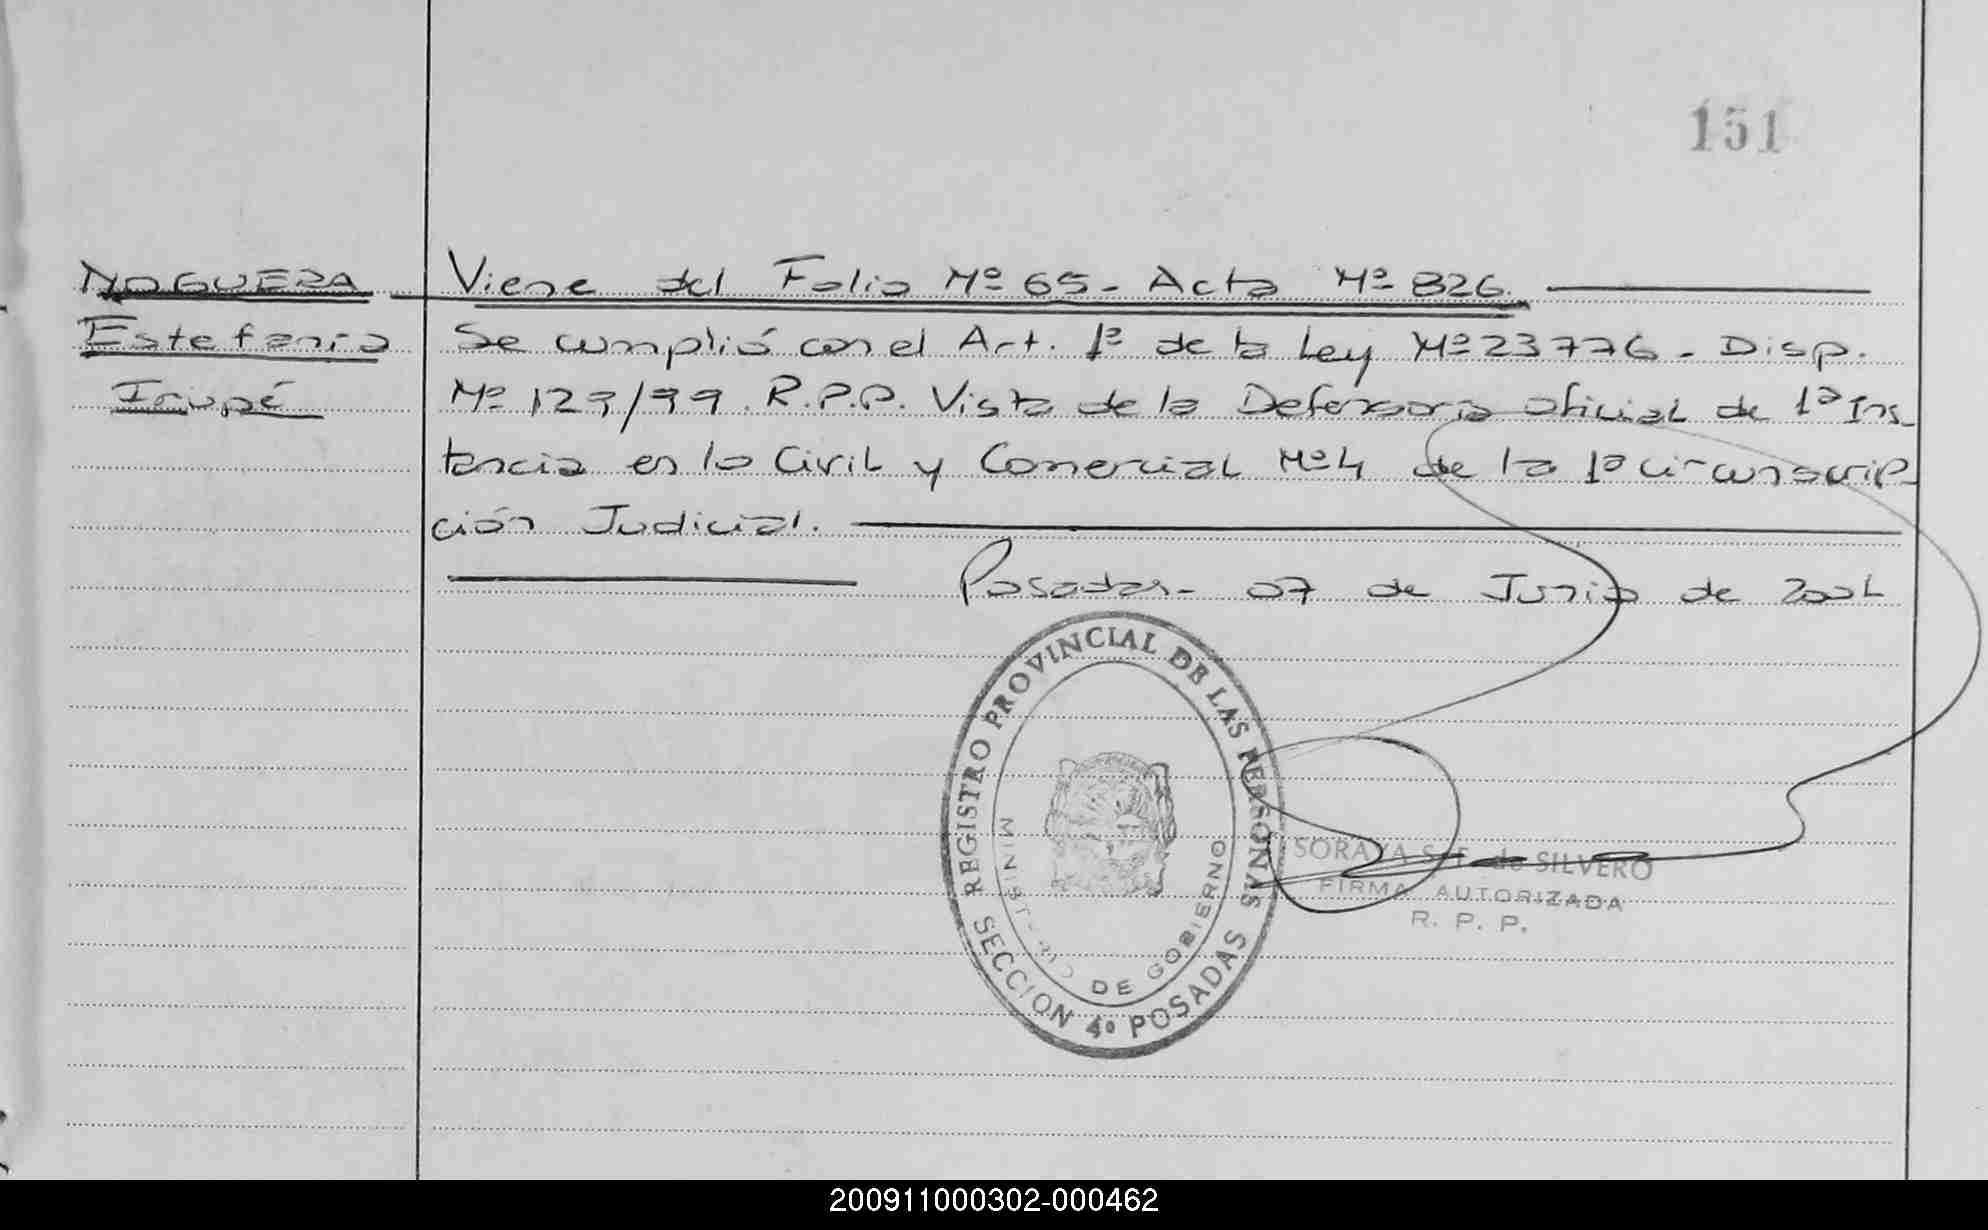 151
NOGUERA
Estefania
Irupé
Viene del Folio Nº 65 - Acta Nº 826.
Se cumplió con el Art. 1º de la Ley Nº 23776 - Disp.
Nº 129/99. R.P.P. Vista de la Defensoria oficial de 1ª Ins
tancia en lo Civil y Comercial Nº 4 de la 1ª circunscrip-
ción Judicial.
Posadas - 07 de Junio de
REGISTRO PROVINCIAL DE LAS PERSONAS
MINISTERIO DE GOBIERNO
SECCION 4º POSADAS
SORAYA de SILVERO
FIRMA AUTORIZADA
R. P. P.
200911000302-000462